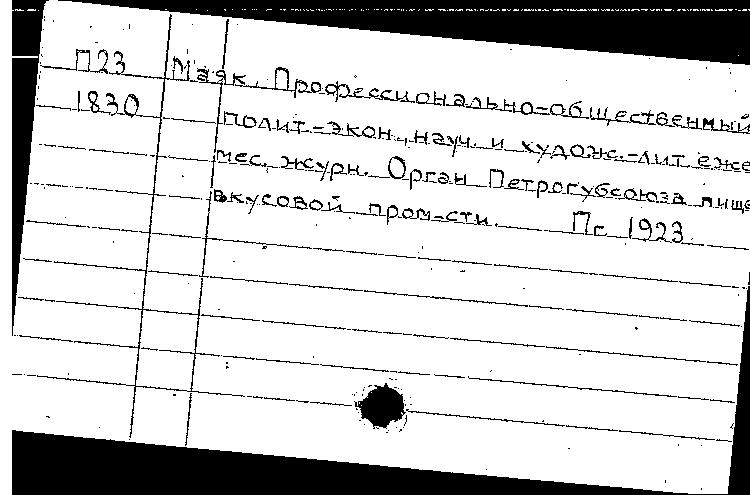 П23 Маяк. Профессионально-общественный
1830 полит-экон., науч. и худож.-лит. еже
мес. журн. Орган Петрогубсоюза пище
вкусовой пром-сти. Пг. 1923.